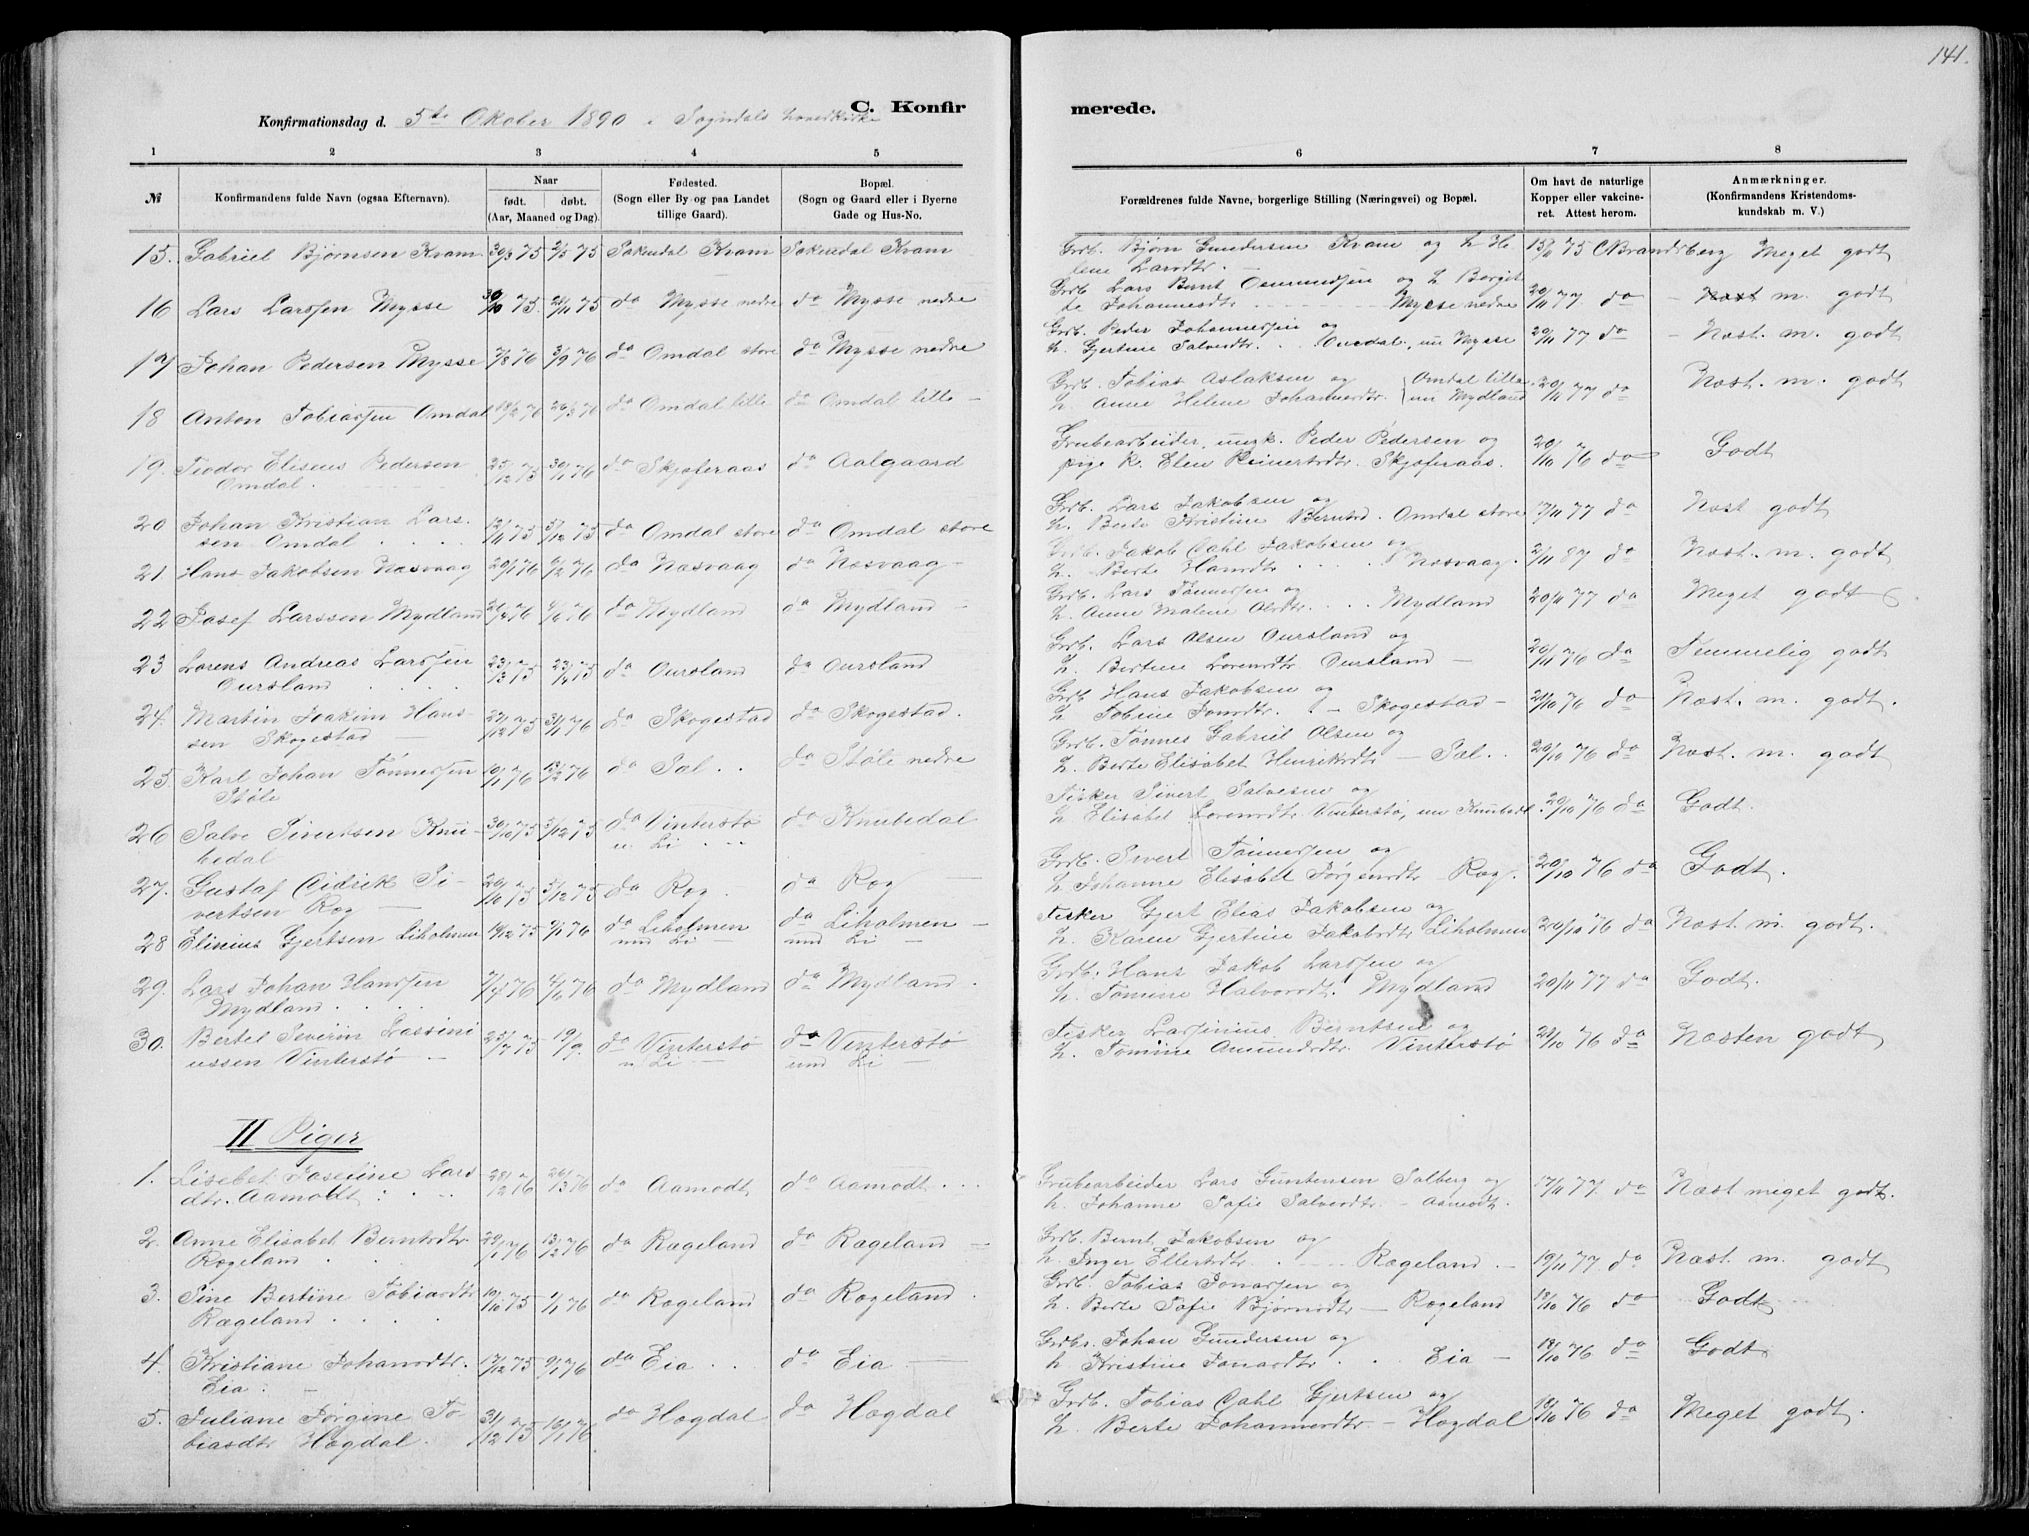 141.
C. Konfirmerede.
Konfirmationsdag d. 5te Oktober 1890 i Sogndals hovedkirke
1 2 3 4 5 6 7 8
№ Konfirmandens fulde Navn (ogsaa Efternavn). Naar født. døbt. (Aar, Maaned og Dag). Fødested. (Sogn eller By og paa Landet tillige Gaard). Bopæl. (Sogn og Gaard eller i Byerne Gade og Hus-No. Forældrenes fulde Navne, borgerlige Stilling (Næringsvei) og Bopæl. Om havt de naturlige Kopper eller vakcineret. Attest herom. Anmærkninger. (Konfirmandens Kristendomskundskab m. V.)
15. Gabriel Bjørnsen Kvam 30/3 75 2/5 75 Sokndal Kvam Sokndal Kvam Grdb. Bjørn Gundersen Kvam og h. Helene Larsdtr. 75 C Brandsberg Meget godt
16 Lars Larssen Mysse 75. 21/11 75 do Mysse nedre do Mysse nedre Grdb. Lars Bernt Osmundsen og h. Bergitte Johannesdtr. Mysse nedre 20/11 77. do Næst m. godt
17 Johan Pedersen Mysse 7/8 76 3/9 76 do Omdal store do Mysse nedre Grdb. Peder Johannessen og h. Gjertine Salvesdtr. Omdal, nu Mysse 20/11 77 do Næst. m. godt
18 Anton Tobiassen Omdal 18/2 76 26/3 76 do Omdal lille do Omdal lille Grdb. Tobias Aslaksen og h. Anne Helene Johannesdtr. Omdal lille nu Mydland 20/11 77 do Næst. m. godt
19. Teodor Eliseus Pedersen Omdal. 25/12 75 30/1 76 do Skjøferaas do Aalgaard Grubearbeider, ungk. Peder Pedersen og pige k. Elen Reinertsdtr. Skjøferaas. 20/10 76 do Godt
20 Johan Kristian Larssen Omdal 12/11 75 5/12 75 do Omdal store do Omdal store Grdb. Lars Jakobsen og h. Berte Kristine Berntsd. Omdal store 17/11 77 do Næst godt
21 Hans Jakobsen Næsvaag 20/1 76 6/2 76 do Næsvaag do Næsvaag Grdb. Jakob Cahl Jakobsen og h. Berte Hansdtr. Næsvaag 2/11 87 do Næst. m. godt
22 Josef Larssen Mydland 21/4 76 4/6 76 do Mydland do Mydland Grdb. Lars Tønnessen og h. Anne Malene Olsdtr. Mydland 20/11 77 do Meget godt
23 Lorens Andreas Larssen Oursland 23/3 75 23/4 75 do Oursland do Oursland Grdb. Lars Olsen Oursland og h. Bertine Lorensdtr. Oursland 20/11 76 do Temmelig godt
24. Martin Joakim Hanssen Skogestad 27/12 75 31/1 76 do Skogestad do Skogestad. Grdb. Hans Jakobsen og h. Tobine Jonsdtr. Skogestad 21/10 76 do Næst. m. godt.
25. Karl Johan Tønnessen Støle 10/1 76 13/2 76 do Sæl do Støle nedre Grdb. Tønnes Gabriel Olsen og h. Berte Elisabet Henriksdtr Sæl 20/10 76 do Næst. m. godt
26 Salve Sivertsen Knubedal 30/10 75 5/12 75 do Vinterstø u. Li do Knubedal Fisker Sivert Salvesen og h. Elisabet Lorensdtr Vinterstø, nu Knubedl. 20/10 76 do Godt.
27. Gustaf Cidrik Sivertsen Rog 20/10 75 5/12 75 do Rog. do Rog Grdb. Sivert Tønnessen og h. Johanne Elisabet Jørgensdtr Rog. 20/10 76 do Godt.
28 Elinius Gjertsen Liholmen 19/12 75 9/1 76 do Liholmen und Li do Liholmen und Li Fisker Gjert Elias Jakobsen og h. Karen Gjertine Jakobsdtr Liholmen 20/10 76 do Næst m. godt.
29. Lars Johan Hanssen Mydland 7/4 76 4/6 76 do Mydland do Mydland. Grdb. Hans Jakob Larssen og h. Tomine Halvorsdt. Mydland 20/11 77 do Godt.
30. Bertel Severin Lassiniussen Vinterstø 25/7 75 19/9. do Vinterstø u. Li do Vinterstø und Li Fisker Larsinius Berntsen og h. Tomine Amundsdtr. Vinterstø 21/10 76 do Næsten godt
II Piger
1. Lisebet Joseline Larsdtr. Aamodt 28/12 76 26/3 76 do Aamodt do Aamodt Grubearbeider Lars Guntensen Salberg og h. Johanne Sofie Salvesdtr. Aamodt. 17/11 77. do Næst meget godt.
2. Anne Elisabet Berntsdtr Rægeland 29/1 76 13/2 76 do Rægeland do Rægeland Grdb. Bernt Jakobsen og h. Inger Ellertsdtr. Rægeland. 19/11 77 do Næst m. godt
3. Sine Bertine Tobiasdtr Rægeland 10/10 75 1/1 76 do Rægeland do Rægeland. Grdb. Tobias Jonassen og h. Berte Sofie Bjørnsdtr Rægeland 18/10 76 do Godt
4. Kristiane Johansdtr. Eia 17/12 75 9/1 76 do Eia do Eia Grdbr. Johan Gundersen og h Kristine Jonasdtr. Eia 18/10 76 do Godt
5. Juliane Jørgine Tobiasdtr Hogdal. 31/12 75 16/1 76 do Hogdal do Hogdal Grdb. Tobias Cahl Gjertsen og h. Berte Johannesdtr. Hogdal 18/10 76 do Meget godt.